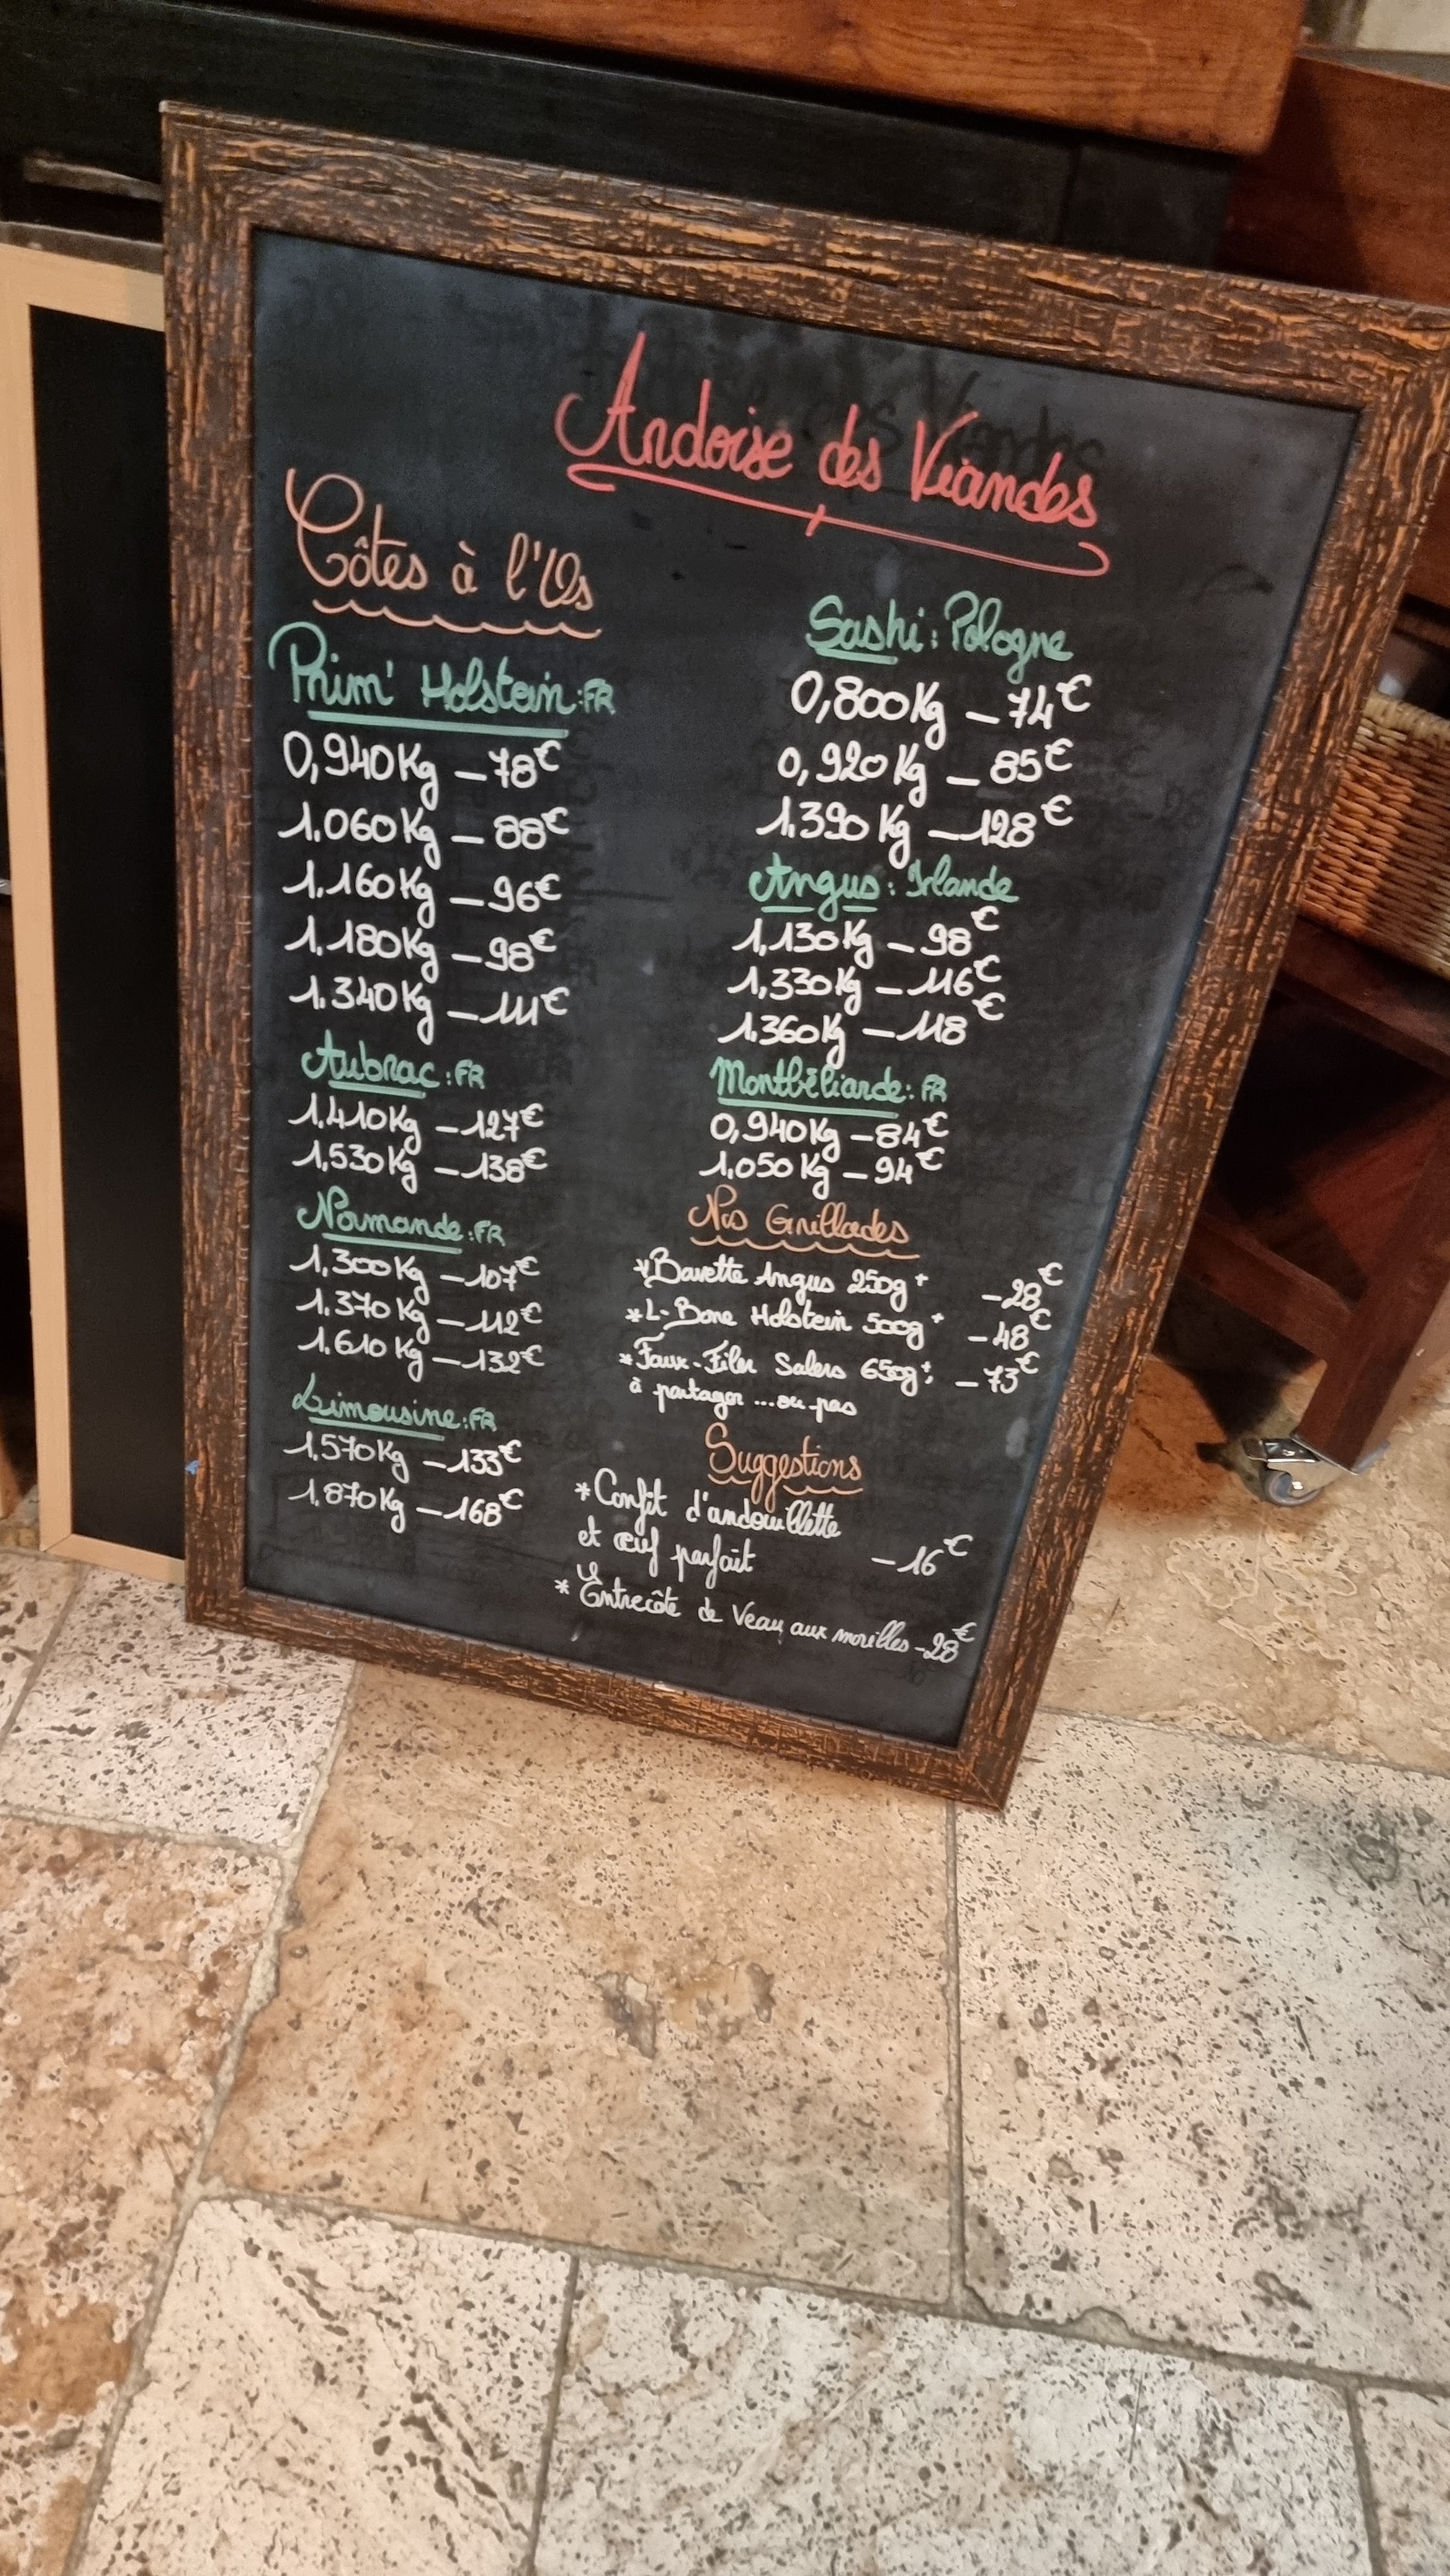 Ardoise des Viandes
Côtes à l'Os
Prim' Holstein : FR
0,940Kg - 78€
1.060Kg - 88€
1.160Kg - 96€
1.180Kg - 98€
1.340Kg - 111€
Aubrac : FR
1,410Kg - 127€
1,530Kg - 138€
Normande : FR
1,300Kg - 107€
1.370Kg - 112€
1.610Kg - 132€
Limousine : FR
1.570Kg - 133€
1.870Kg - 168€
Sashi : Pologne
0,800Kg - 74€
0,920Kg - 85€
1.390Kg - 128€
Angus : Irlande
1,130Kg - 98€
1,330Kg - 116€
1.360Kg - 118€
Montbéliarde : FR
0,940Kg - 84€
1,050Kg - 94€
Nos Grillades
* Bavette Angus 250g+ - 28€
* L-Bone Holstein 500g+ - 48€
* Faux-Filer Salers 650g+: - 73€
à partager ... ou pas
Suggestions
* Confit d'andouillette
et œuf parfait - 16€
* Entrecôte de Veau aux morilles - 28€